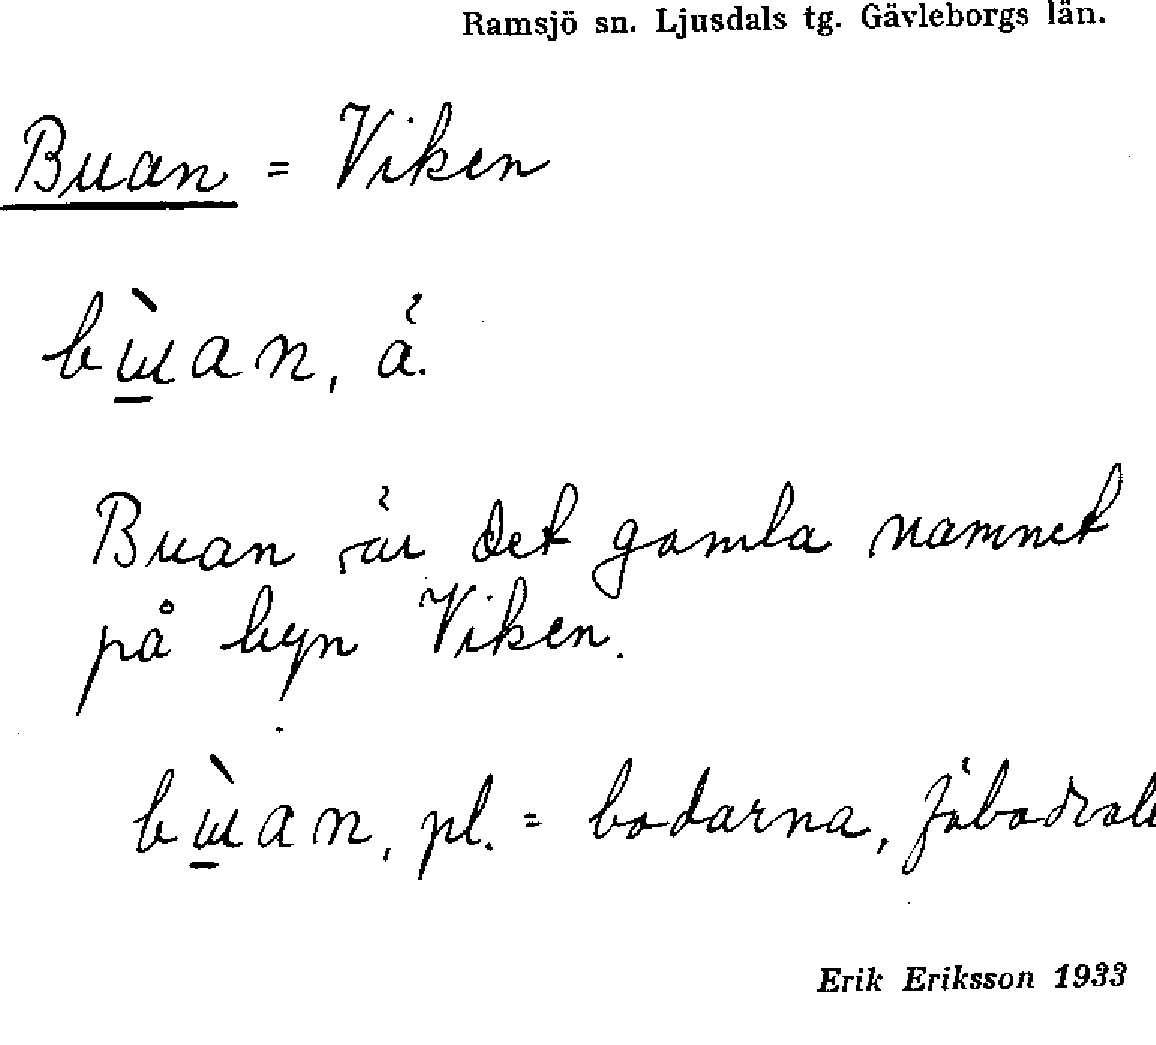 Ramsjö sn. Ljusdals tg. Gävleborgs län.
Buan = Viken
bu̠̇̀an, ä.
Buan är det gamla namnet
på byn Viken.
bu̠̇̀an, pl. = bodarna,
Erik Eriksson 1933